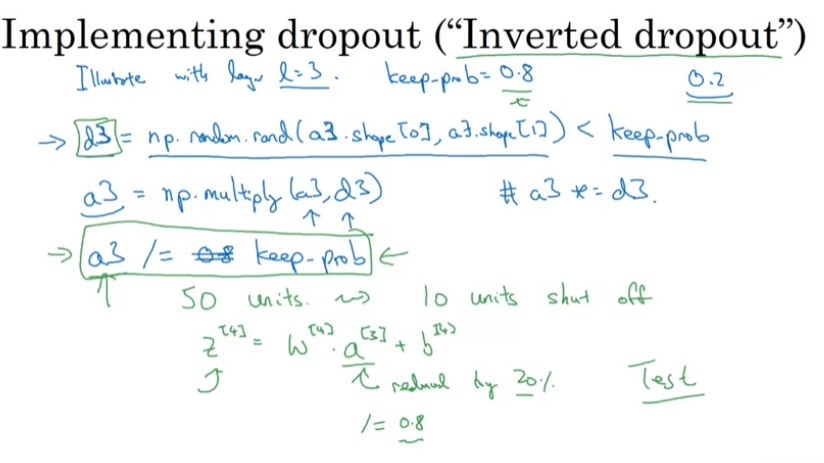 Implementing dropout (“Inverted dropout”)
Illustrate with layer l=3. keep-prob = 0.8 0.2
→ d3 = np.random.rand(a3.shape[0], a3.shape[1]) < keep-prob
a3 = np.multiply(a3, d3) # a3 *= d3.
→ a3 /= 0.8 keep-prob ←
50 units. ⇝ 10 units shut off
z^[4] = W^[4] · a^[3] + b^[4]
reduced by 20%. Test
/= 0.8